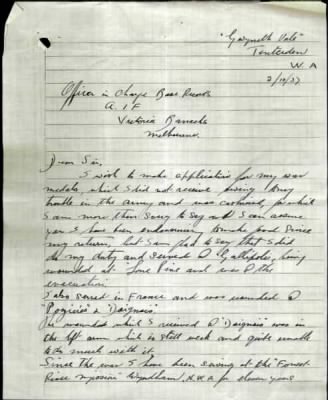 "Gwyneth Vale"
Tenterden
W. A
2/10/37
Officer in Charge Base Records
A. I F
Victoria Barracks
Melbourne.
Dear Sir,
I wish to make application for my war
medals, which I did not receive owing to my
trouble in the army and was cashiered, for which
I am more then sorry to say and I can assure
you I have been endeavouring to make good since
my return, but I am glad to say that I did
do my duty and served @ Gallipoli, being
wounded at Lone Pine and was @ the
evacuation.
I also served in France and was wounded @
"Pozieres" &
wounded which I received @ was in
the left arm which is still weak and quite unable
to do much with it.
Since the war I have been serving at the "Forrest
River mission" Wyndham, N.W.A for eleven years